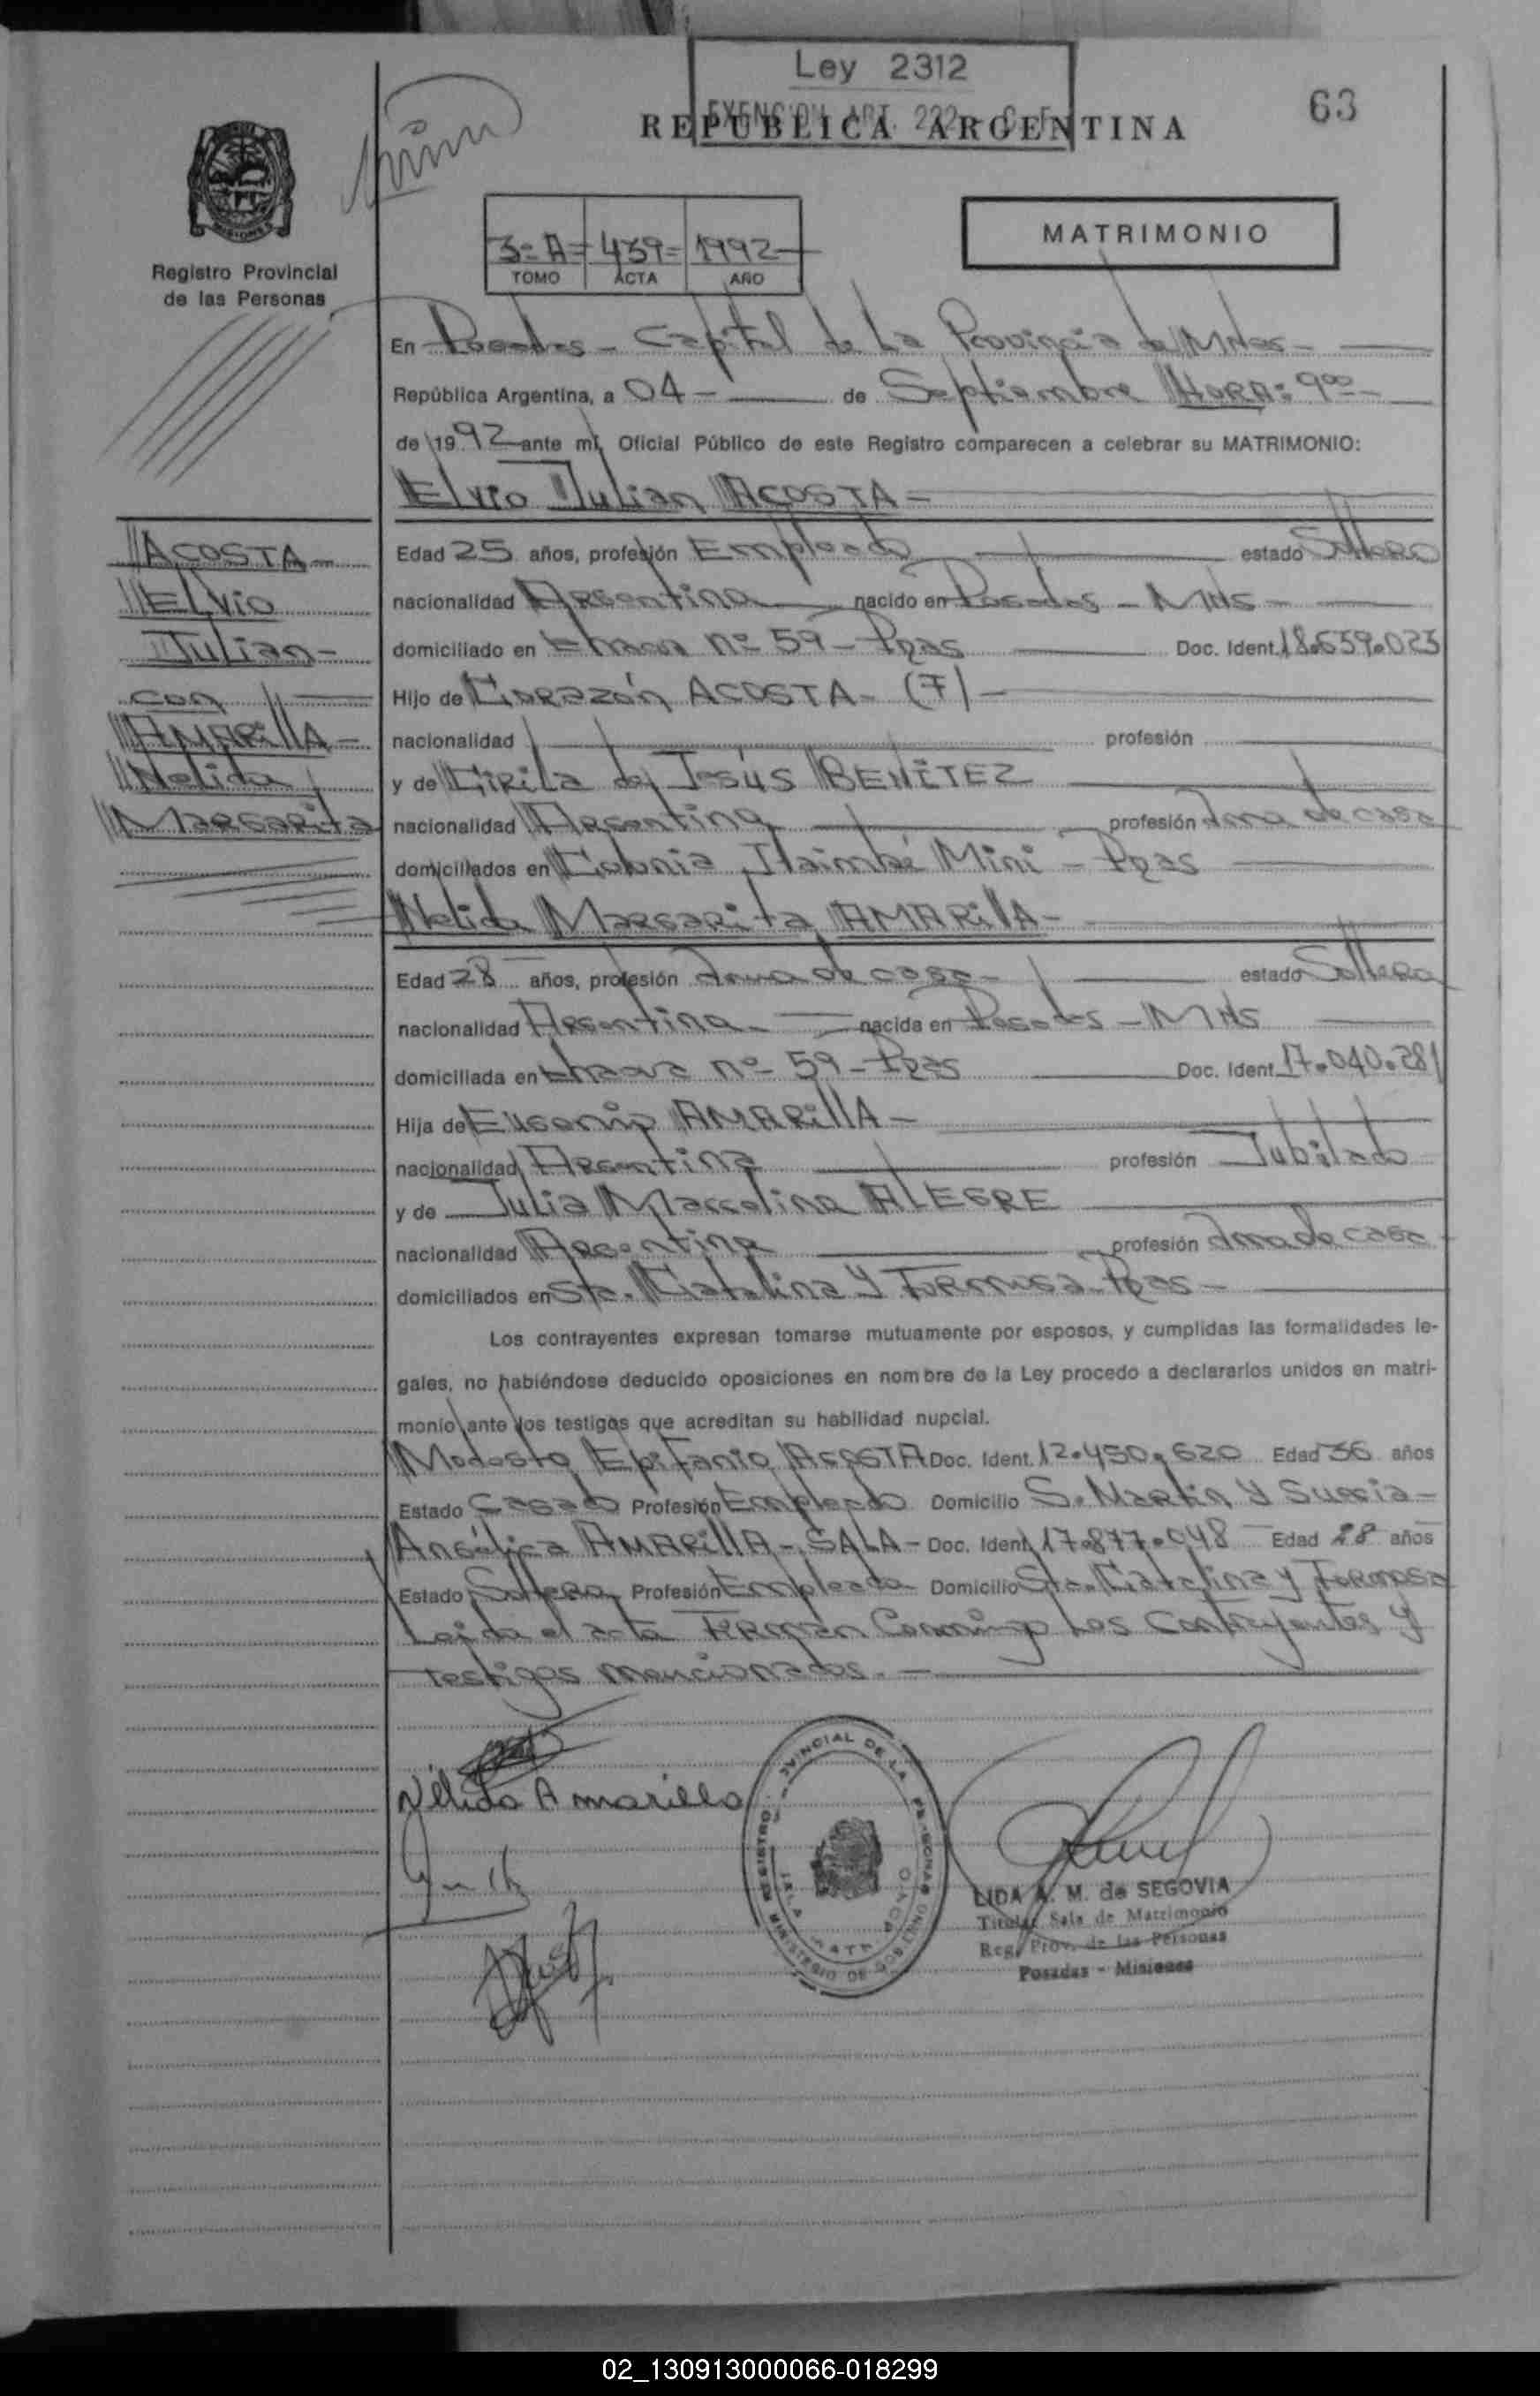 Ley 2312
EXENCION ART. 222
REPUBLICA ARGENTINA
63
Registro Provincial
de las Personas
3-A- 439- 1992-
TOMO ACTA AÑO
MATRIMONIO
En Posadas - Capital de La Provincia de Mnes-
República Argentina, a 04- de Septiembre HORA: 9⁰⁰-
de 1992 ante mí, Oficial Público de este Registro comparecen a celebrar su MATRIMONIO:
Elvio Julian ACOSTA-
ACOSTA-
Elvio
Julian-
con
AMARILLA-
Nelida
Margarita
Edad 25 años, profesión Empleado estado Soltero
nacionalidad Argentina nacido en Posadas - Mnes-
domiciliado en Chacra nº 59- Pdas Doc. Ident. 18.639.023
Hijo de Corazón ACOSTA- (F)-
nacionalidad profesión
y de Cirila de Jesús BENÍTEZ
nacionalidad Argentina profesión Ama de casa
domiciliados en Colonia Itaimbé Mini - Pdas
Nelida Margarita AMARILLA-
Edad 28 años, profesión Ama de casa- estado Soltera
nacionalidad Argentina- nacida en Posadas - Mnes
domiciliada en Chacra nº 59- Pdas Doc. Ident. 17.040.281
Hija de Eugenio AMARILLA-
nacionalidad Argentina profesión Jubilado
y de Julia Marcelina ALEGRE
nacionalidad Argentina profesión Ama de casa-
domiciliados en Sta. Catalina y Formosa- Pdas-
Los contrayentes expresan tomarse mutuamente por esposos, y cumplidas las formalidades le-
gales, no habiéndose deducido oposiciones en nombre de la Ley procedo a declararlos unidos en matri-
monio ante los testigos que acreditan su habilidad nupcial.
Modesto Epifanio ACOSTA Doc. Ident. 12.450.620 Edad 36 años
Estado Casado Profesión Empleado Domicilio S. Martin y Suecia-
Angélica AMARILLA- SALA- Doc. Ident. 17.877.048 Edad 28 años
Estado Soltera Profesión Empleada Domicilio Sta. Catalina y Formosa
Leida el acta Firman Conmigo Los Contrayentes y
testigos mencionados.-
Nélida Amarilla
REGISTRO PROVINCIAL DE LAS PERSONAS
MINISTERIO DE GOBIERNO
LIDA A. M. de SEGOVIA
Titular Sala de Matrimonio
Reg. Prov. de las Personas
Posadas - Misiones
02_130913000066-018299